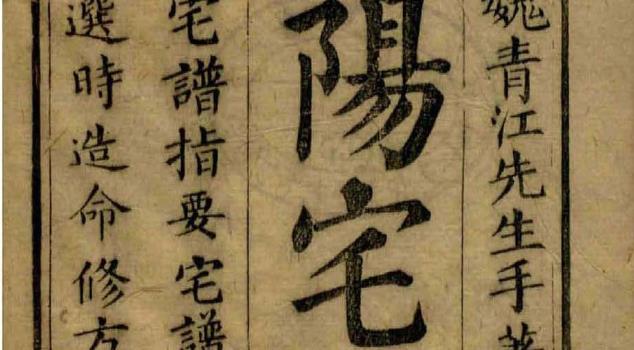 魏青江先生手著
陽宅
宅譜指要宅譜
選時造命修方